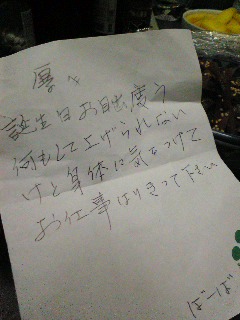 厚へ
誕生日お目出度う
何もして上げられない
けど身体に気をつけて
お仕事はりきって下さい
ばーば